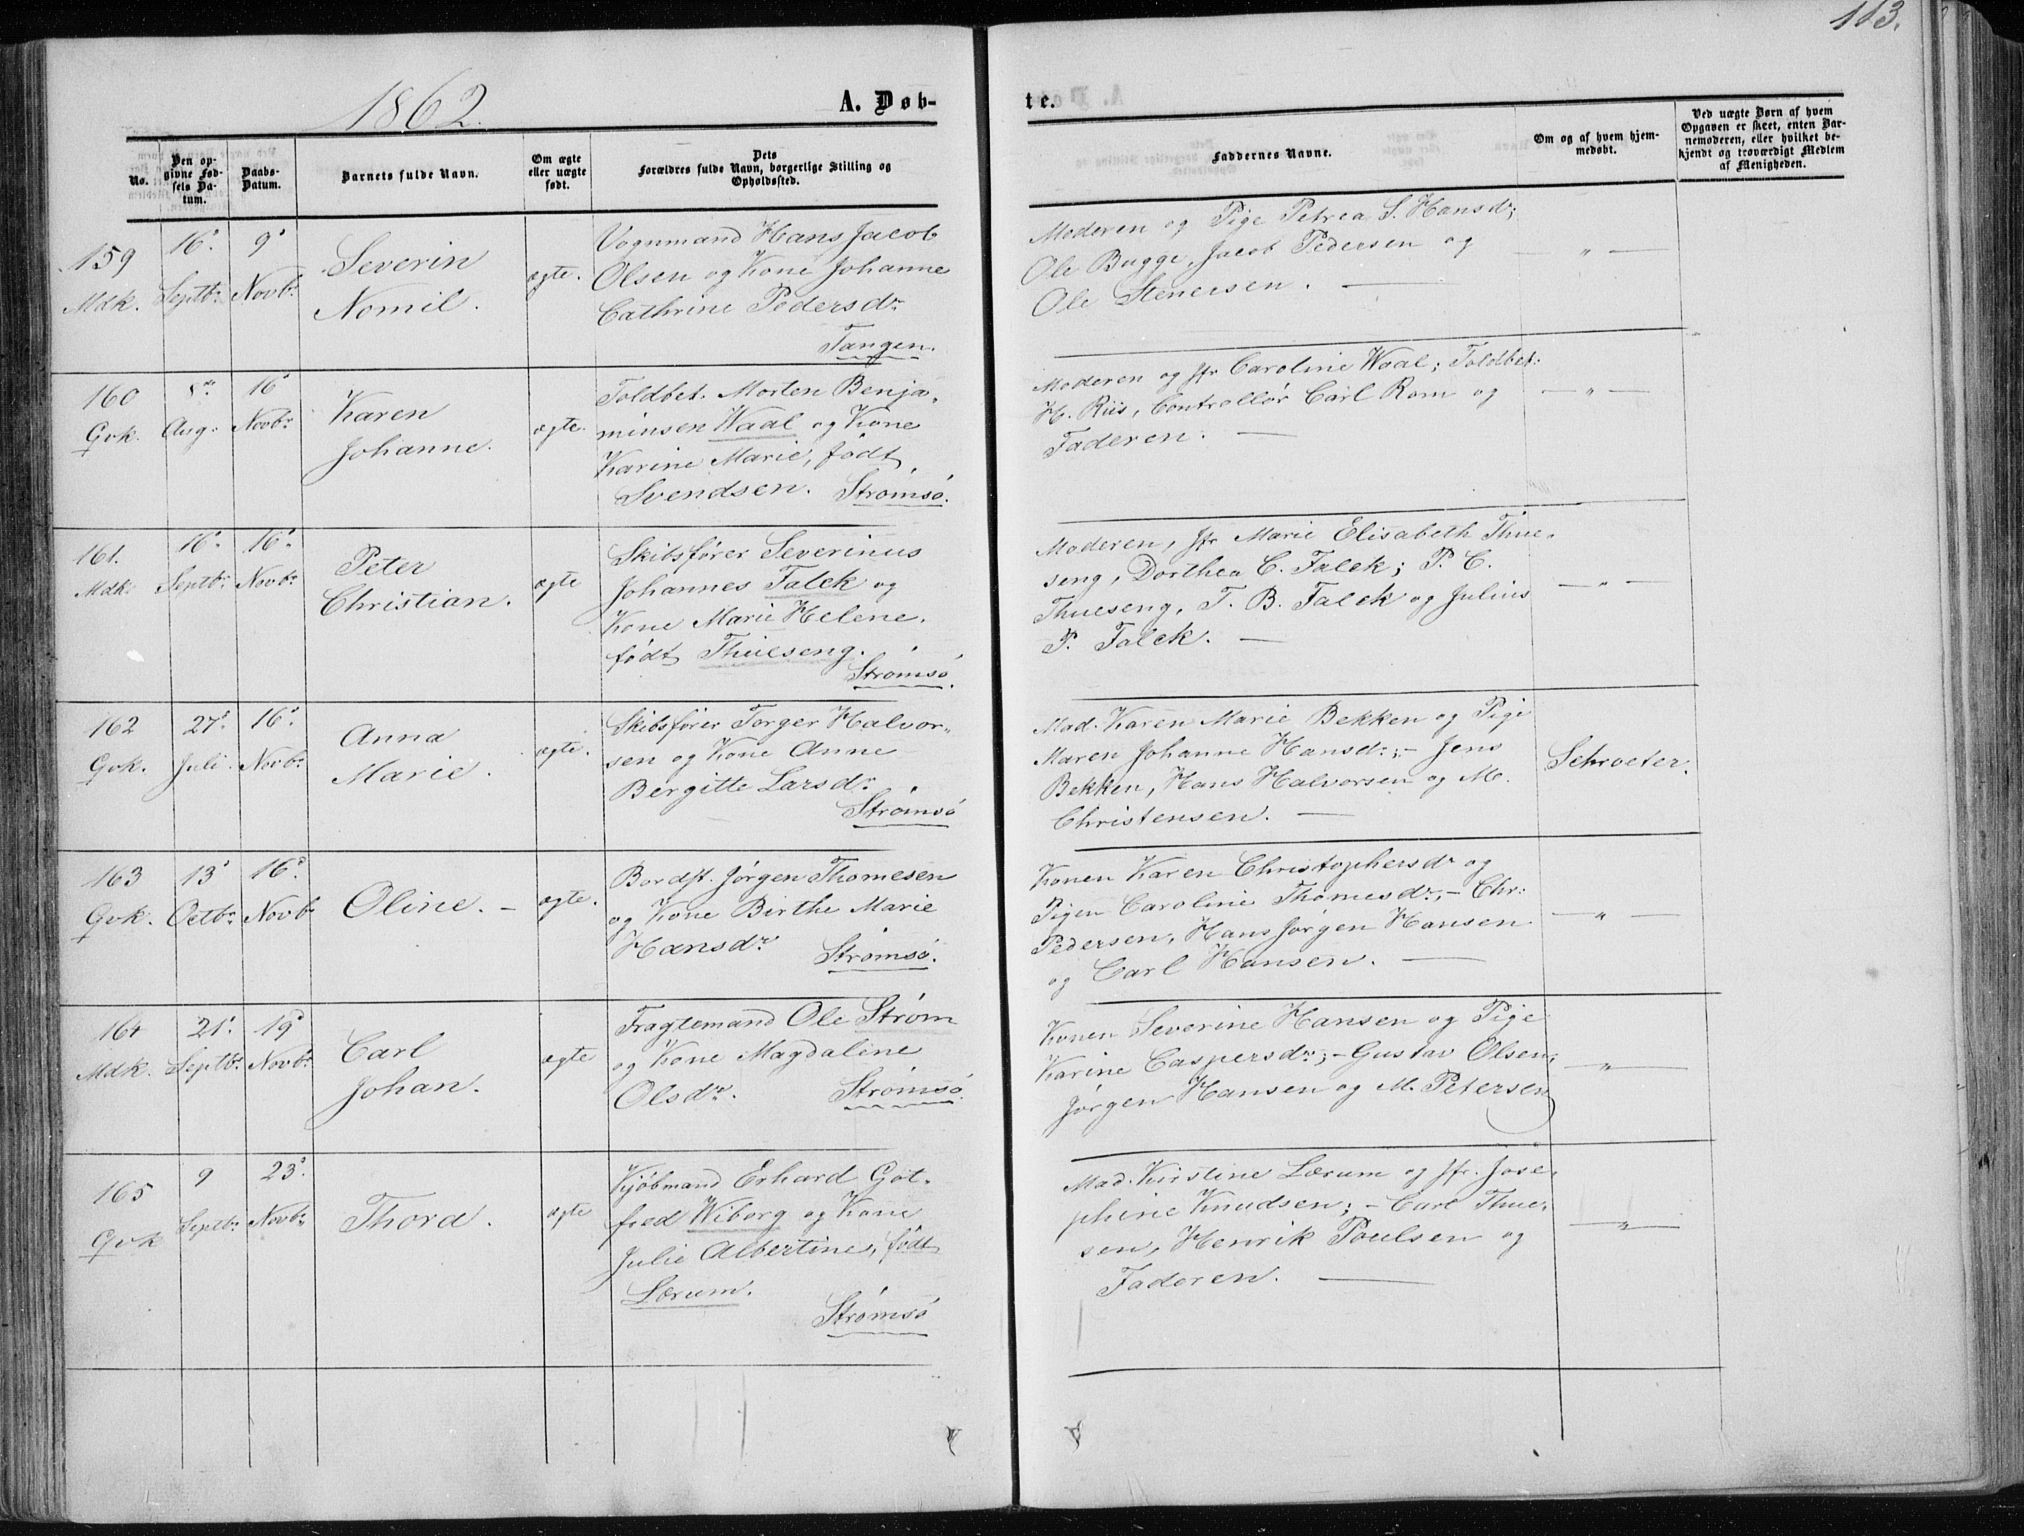 113.
1862.
A. Døb-
te.
No.
Den op-
givne Fød-
sels Da-
tum.
Daabs-
Datum.
Barnets fulde Navn.
Om ægte
eller uægte
født.
Dets
Forældres fulde Navn, borgerlige Stilling og
Opholdssted.
Faddernes Navne.
Om og af hvem hjem-
medøbt.
Ved uægte Børn af hvem
Opgaven er skeet, enten Bar-
nemoderen, eller hvilket be-
kjendt og troværdigt Medlem
af Menigheden.
159
Mdk.
16.
Septbr.
9
Novbr.
Severin
Nomil.
ægte.
Vognmand Hans Jacob
Olsen og Kone Johanne
Cathrine Pedersdr.
Tangen.
Moderen og Pige Petrea S. Hansdr;
Ole Bugge, Jacob Pedersen og
Ole Stenersen. —
— " —
160
Qvk.
Aug.
16
Novbr.
Karen
Johanne.
ægte.
Toldbet. Morten Benja-
minsen Waal og Kone
Karine Marie, født
Svendsen. Strømsø.
Moderen og Jfr Caroline Waal; Toldbet:
H. Riis, Controllør Carl Rom og
Faderen. —
— " —
161.
Mdk.
16.
Septbr.
16.
Novbr.
Peter
Christian.
ægte
Skibsfører Severinus
Johannes Falck og
Kone Marie Helene.
født Thueseng.
Strømsø.
Moderen, Jfr Marie Elisabeth Thue-
seng, Dorthea C. Falck; P. C.
Thueseng, T. B. Falck og Julius
P. Falck. —
— " —
162
Qvk.
27.
Juli.
16.
Novbr.
Anna
Marie.
ægte.
Skibsfører Torger Halvor-
sen og Kone Anne
Bergitte Larsdr.
Strømsø
Mad. Karen Marie Bekken og Pige
Maren Johanne Hansdr; – Jens
Bekken, Hans Halvorsen og M.
Christensen. —
Schroeter.
163
Qvk.
13
Octbr.
16.
Novbr
Oline. –
ægte.
Bordst. Jørgen Thomesen
og Kone Birthe Marie
Hansdr Strømsø.
Konen Karen Christophersdr og
Pigen Caroline Thomesdr, – Chr:
Pedersen, Hans Jørgen Hansen
og Carl Hansen. —
— " —
164
Mdk.
21.
Septbr.
19
Novbr.
Carl
Johan.
ægte
Fragtemand Ole Strøm
og Kone Magdaline
Olsdr. Strømsø.
Konen Severine Hansen og Pige
Karine Caspersdr; – Gustav Olsen;
Jørgen Hansen og M. Petersen
— " —
165
Qvk
9
Septbr.
23.
Novbr.
Thora.
ægte
Kjøbmand Erhard Got-
fred Wiborg og Kone
Julie Albertine, født
Lærum.
Strømsø
Mad. Kirstine Lærum og Jfr. Jose-
phine Knudsen; – Carl Thue-
sen, Henrik Poulsen og
Faderen. —
— " —